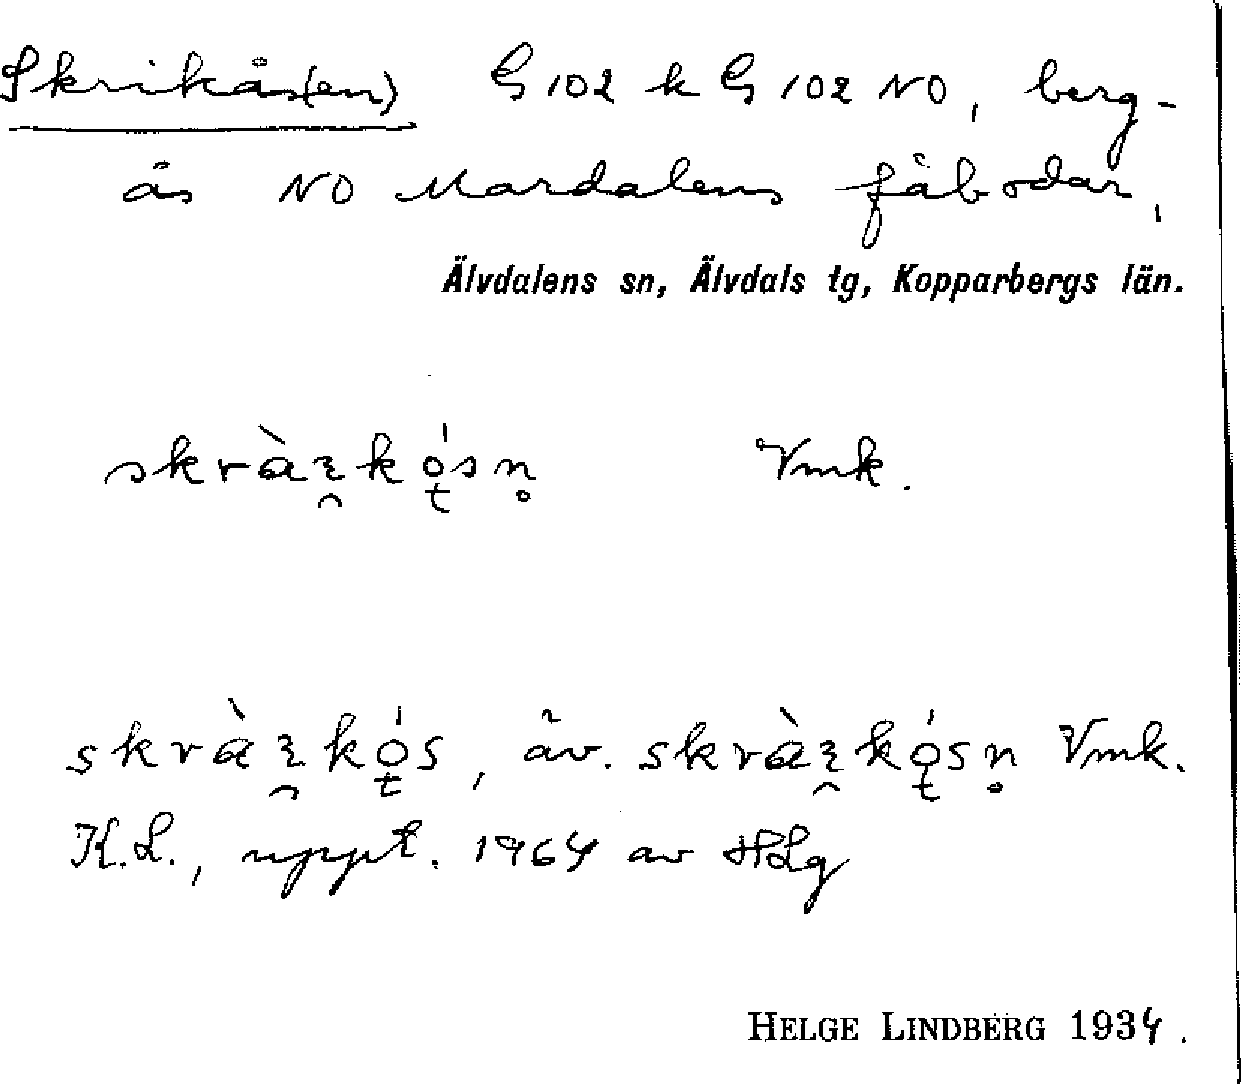 Skrikås(en) G 102 k G 102 NO, berg-
ås NO Mardalens fäbodar,
Älvdalens sn, Älvdals tg, Kopparbergs län.
Vmk.
äv. Vmk.
K.L., uppt. 1964 av HLg
HELGE LINDBERG 1934.